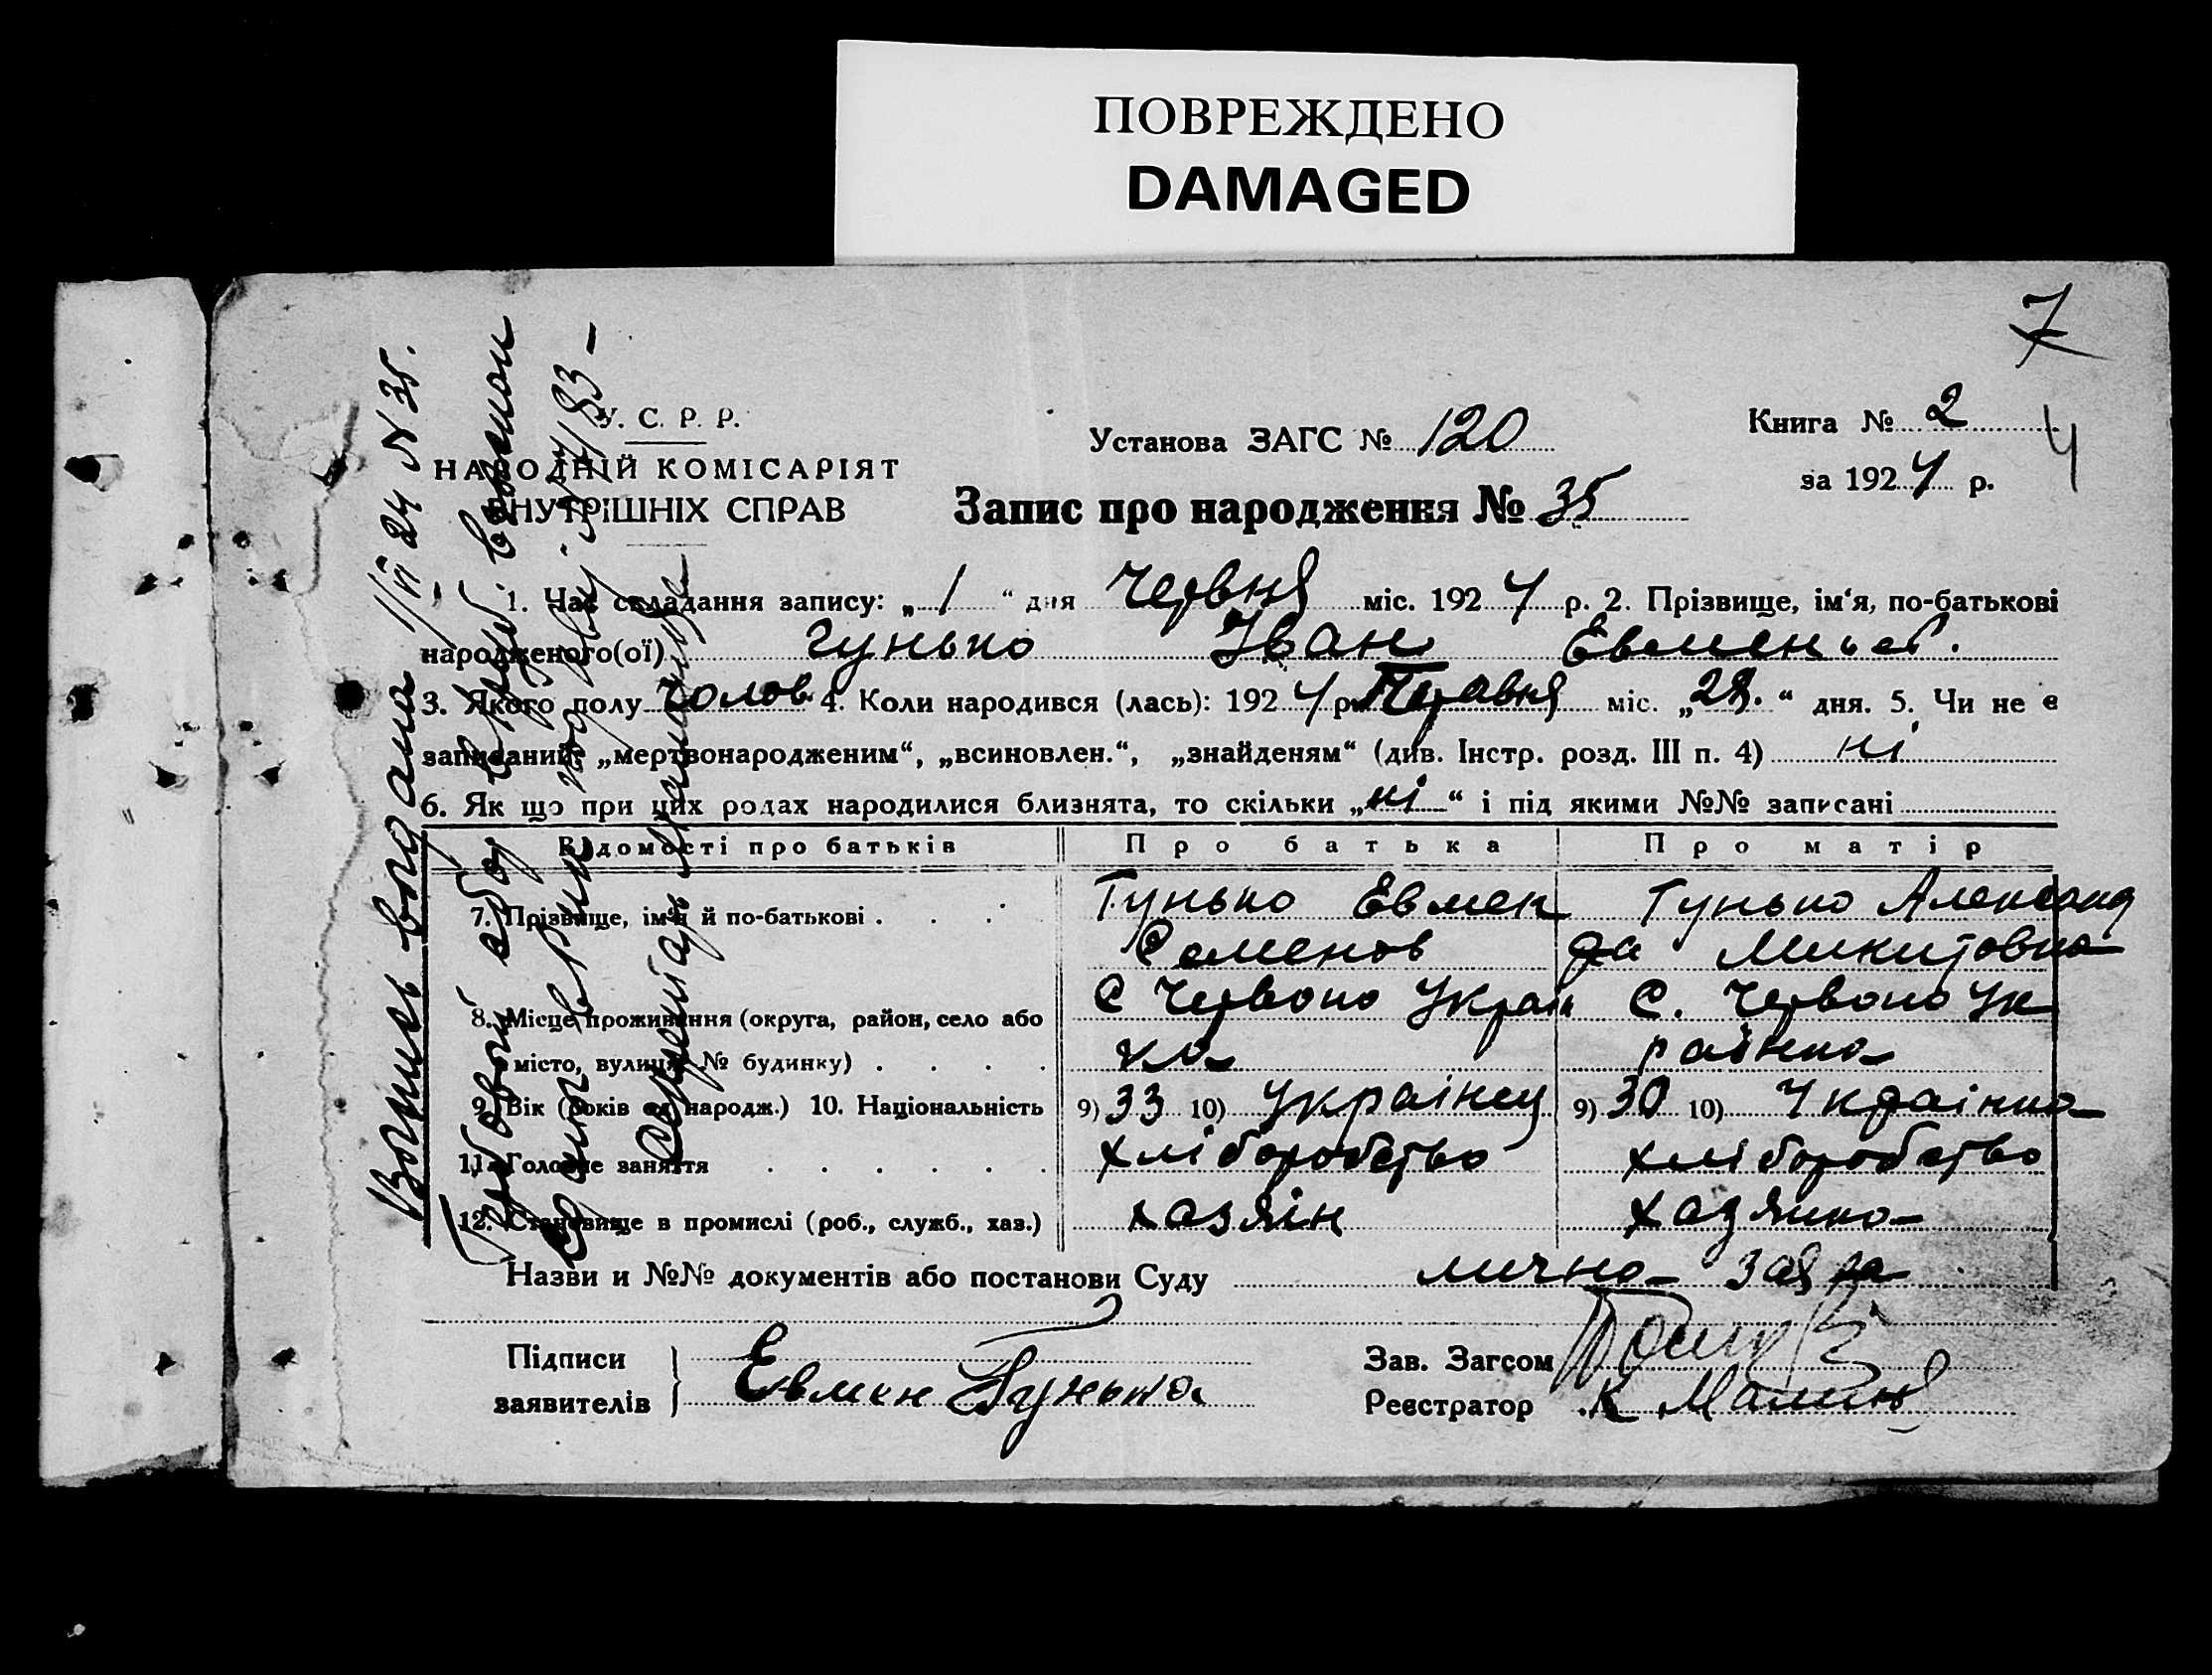 ПОВРЕЖДЕНО
DAMAGED
7
У. С. Р. Р.
НАРОДНІЙ КОМІСАРІЯТ
ВНУТРІШНІХ СПРАВ
Установа ЗАГС № 120
Книга № 2
за 1924 р.
4
Запис про народження № 35
1. Час складання запису: „ 1 “ дня Червня міс. 1924 р. 2. Прізвище, ім‘я, по-батькові
народженого(ої) Гунько Іван
3. Якого полу Чолов 4. Коли народився (лась): 1924 р. Травня міс. „28.“ дня. 5. Чи не є
записаний: „мертвонародженим“, „всиновлен.“, „знайденям“ (див. Інстр. розд. III п. 4) ні
6. Як що при цих родах народилися близнята, то скільки „ні“ і під якими №№ записані
Відомості про батьків Про батька Про матір
7. Прізвище, ім'я й по-батькові . . . Гунько Евмен Гунько Александ
Семенов ра Микитовна
8. Місце проживання (округа, район, село або С Червоно Украін С. Червоно Ук
місто, вулиця, № будинку) . . . . ка раінка
9. Вік (років од народж.) 10. Національність 9) 33 10) Украінец 9) 30 10) Украінка
11. Головне заняття . . . . . . хліборобство хліборобство
12. Становище в промислі (роб., служб., хаз.) хазяін хазяйка
Назви и №№ документів або постанови Суду лична заява
Підписи
заявителів Евмен Гунько
Зав. Загсом
Реєстратор К
Вопись выдана 1/VI 24 N 35.